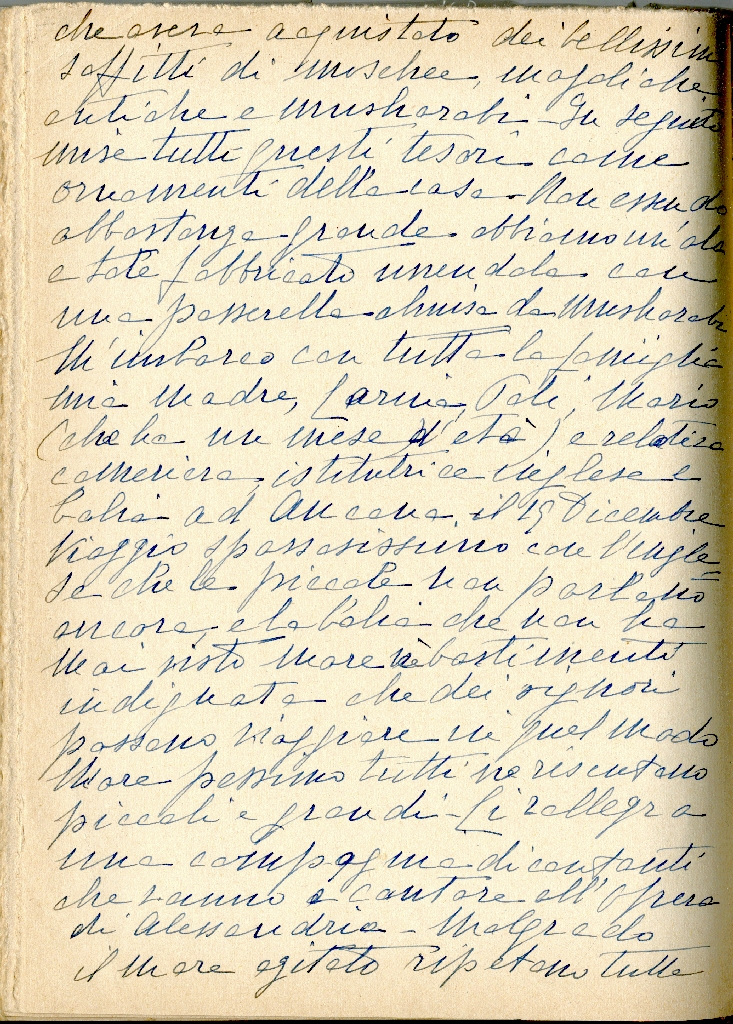 che aveva acquistato dei bellissimi
soffitti di moschee, majoliche
antiche e musharabi - In seguito
mise tutti questi tesori come
ornamenti della casa - Non essendo
abbastanza grande abbiamo un'ala
fabbricato unendola con
una passerella chiusa da musharabi
M'imbarco con tutta la famiglia
mia madre, Mario
(che ha un mese d'età) e relativa
cameriera, istitutrice inglese e
balia ad Ancona il 19 Dicembre
Viaggio spassosissimo con l'ingle=
se che le piccole non parlano
ancora, e la balia che non ha
mai visto mare nè bastimenti
indignata che dei signori
possano viaggiare in quel modo
Mare pessimo tutti ne risentono
piccoli e grandi - Ci rallegra
una compagnia di cantanti
che vanno a cantare all'Opera
di Alessandria - Malgrado
il mare agitato ripetono tutte